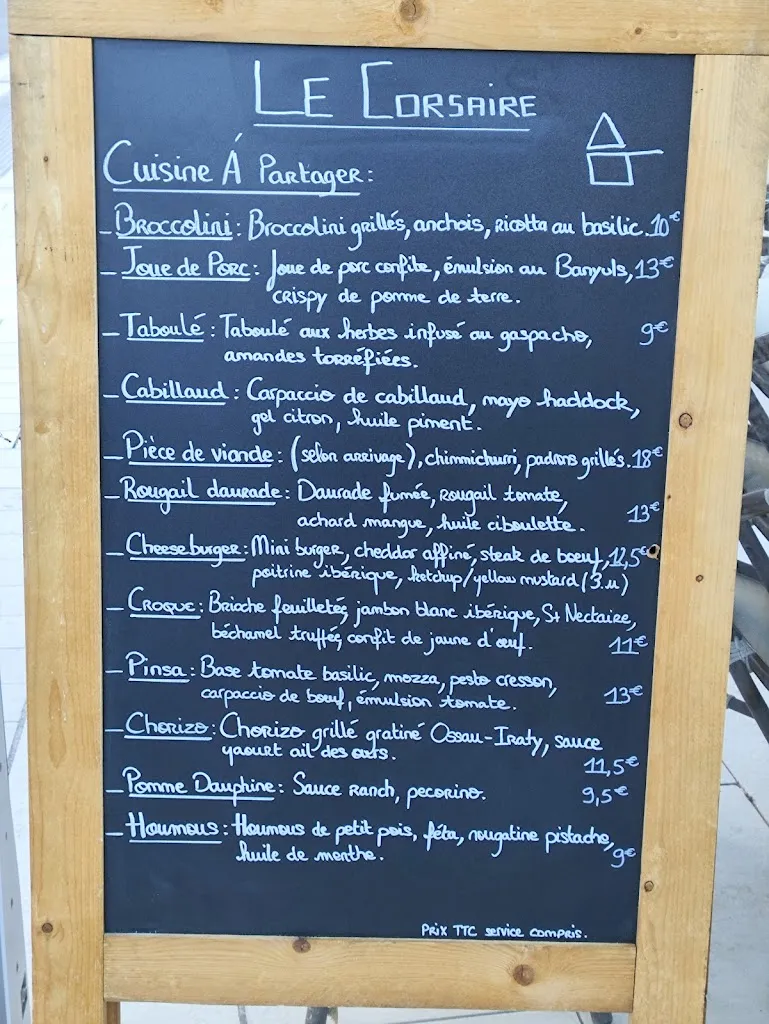 LE CORSAIRE
Cuisine Á Partager:
- Broccolini: Broccolini grillés, anchois, ricotta au basilic. 10€
- Joue de Porc: Joue de porc confite, émulsion au Banyuls, 13€
crispy de pomme de terre.
- Taboulé: Taboulé aux herbes infusé au gaspacho, 9€
amandes torréfiées.
- Cabillaud: Carpaccio de cabillaud, mayo haddock,
gel citron, huile piment.
- Pièce de viande: (selon arrivage), chimmichurri, padrons grillés. 18€
- Rougail daurade: Daurade fumée, rougail tomate,
achard mangue, huile ciboulette. 13€
- Cheeseburger: Mini burger, cheddar affiné, steak de boeuf, 12,5€
poitrine ibérique, ketchup/yellow mustard (3.u)
- Croque: Brioche feuilletée, jambon blanc ibérique, St Nectaire,
béchamel truffée, confit de jaune d'œuf. 11€
- Pinsa: Base tomate basilic, mozza, pesto cresson,
carpaccio de boeuf, émulsion tomate. 13€
- Chorizo: Chorizo grillé gratiné Ossau-Iraty, sauce
yaourt ail des ours. 11,5€
- Pomme Dauphine: Sauce Ranch, pecorino. 9,5€
- Houmous: Houmous de petit pois, féta, nougatine pistache, 9€
huile de menthe.
Prix TTC service compris.